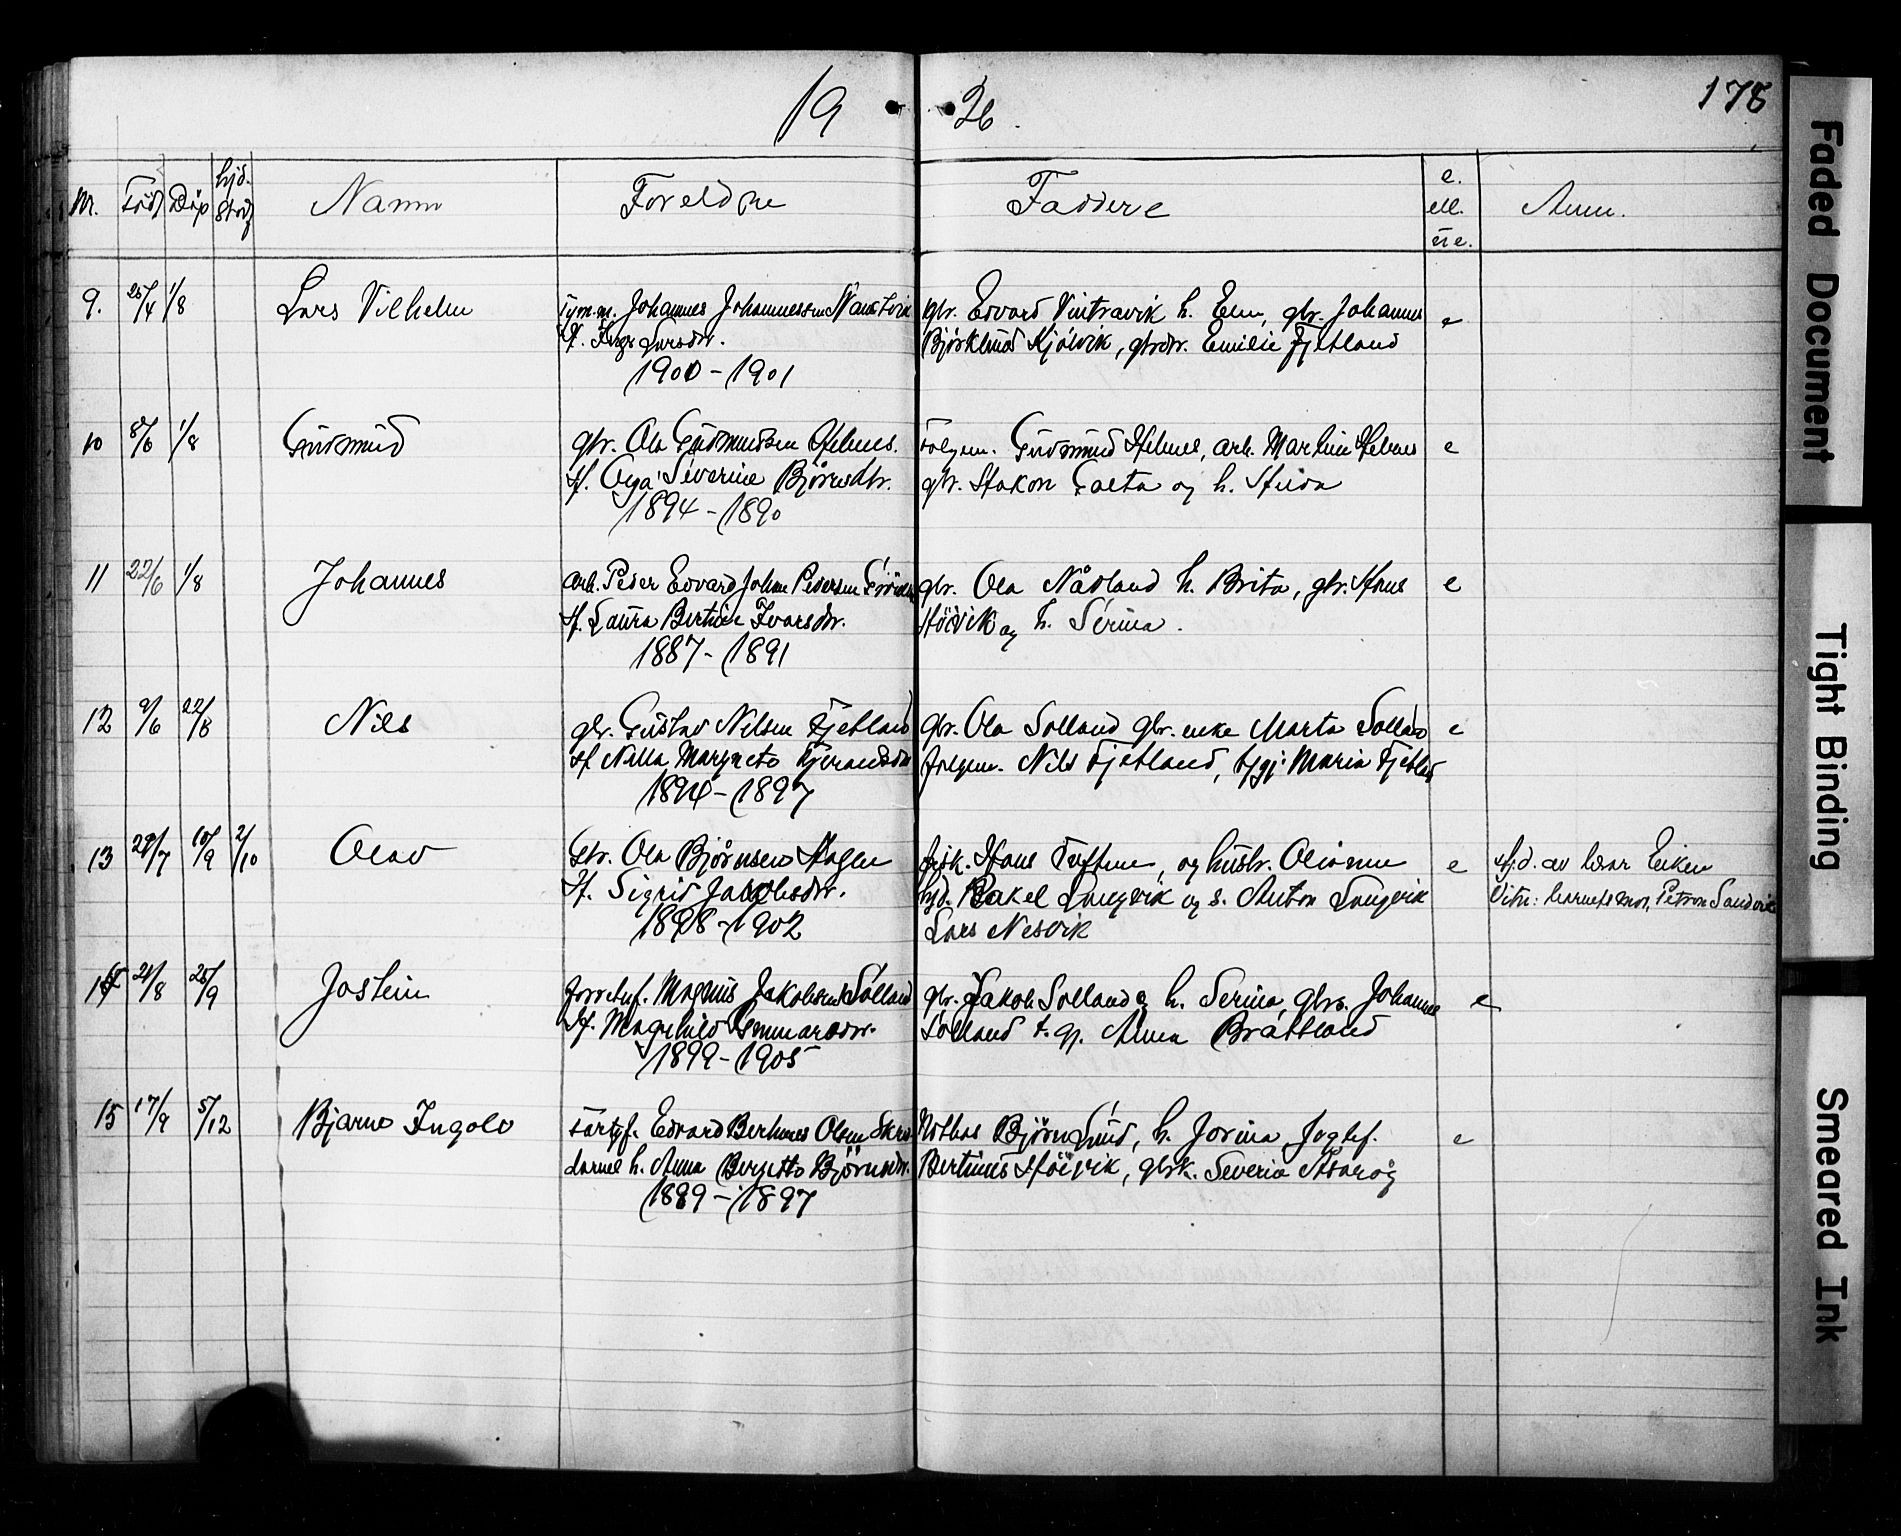 19 26.
178
Nr. Född Döp hjd. Stad Namn Foreldre Faddere e. ell. ue. Anm.
9. 25/4 1/8 Lars Vilhelm
Johannes Johannessen
H. Inga Larsdtr.
1900 - 1901
gbr. Edvard Vintravik h. Elen, gbr. Johannes e
Björklund Kjölvik, gbrdr. Emilie Fjetland
10 8/6 1/8 Gudmund
gbr. Ola Gudmundsen Helmes.
H. Severine Björnsdtr.
1894 - 1890
folgem. Gudmund Helmes, arb. Martin Helmes e
gbr. Hakon og h.
11 22/6 1/8 Johannes
arb. Peder Edvard Johan Pedersen
H. Laura Bertine Ivarsdtr.
1887 - 1891
gbr. Ola Nådland h. Brita, gbr. Hans e
Höivik og h. Serina.
12 9/6 22/8 Nils
gbr. Gustav Nilsen Fjetland
H. Nilla Margreta
1894 - 1897
gbr. Ola Solland gbr. enke Marta Solland e
folgem. Nils Fjetland, Maria Fjetland
13 29/7 19/9 2/10 Olav
gbr. Ola Björnsen Hagen
H. Sigrid Jakobsdtr.
1898 - 1902
fisk. Hans Tuftene, og hustr. e
Rakel Langvik og s. Anton Langvik
Lars Nesvik
hjd. av lærar Eiken
Vitn: barnets mor, Petron Sandvik
14 21/8 26/9 Jostein
Magnus Jakobsen Solland
H. Magnhild Gunnarsdtr.
1899 - 1905
gbr. Jakob Solland og h. Serina, gbrs. Johannes e
Solland t. gj. Anna Bråtland
15 17/9 5/12 Bjarne Ingolv
Edvard Bertinus Olsen
h. Anna Bergitte Björnsdtr.
1889 - 1897
Björn Lund, h. Jorina, e
Bertinus Höivik, Severin
Faded Document
Tight Binding
Smeared Ink